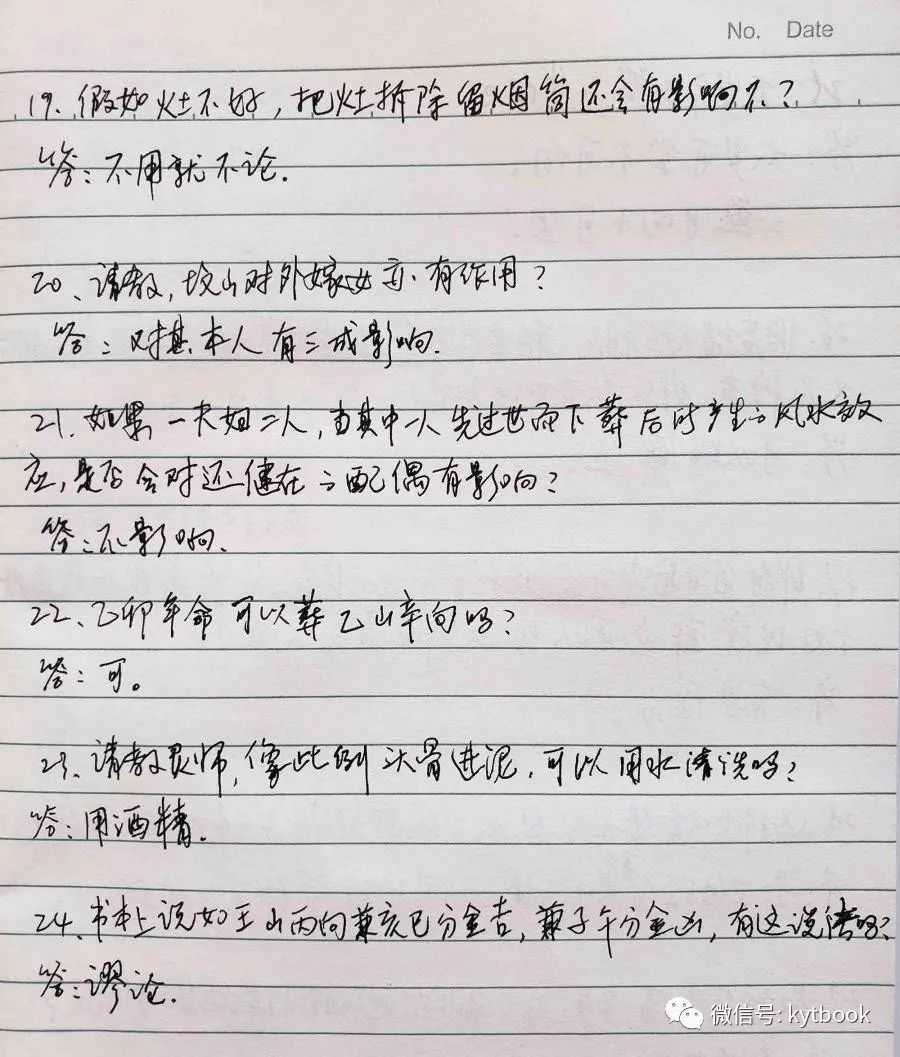 No. Date
19. 假如灶不好，把灶拆除留烟筒还会有影响不？
答：不用就不论.
20、请教，坟山对外嫁女亦有作用？
答：对其本人有三成影响.
21. 如果一夫妇二人，当其中一人先过世而下葬后所产生的风水效
应，是否会对还健在的配偶有影响？
答：不影响.
22、乙卯年命可以葬乙山辛向吗？
答：可。
23. 请教良师，像此例头骨进泥，可以用水清洗吗？
答：用酒精.
24、书本上说如壬山丙向兼亥巳分金吉，兼子午分金凶，有这说法吗？
答：谬论.
微信号: kytbook